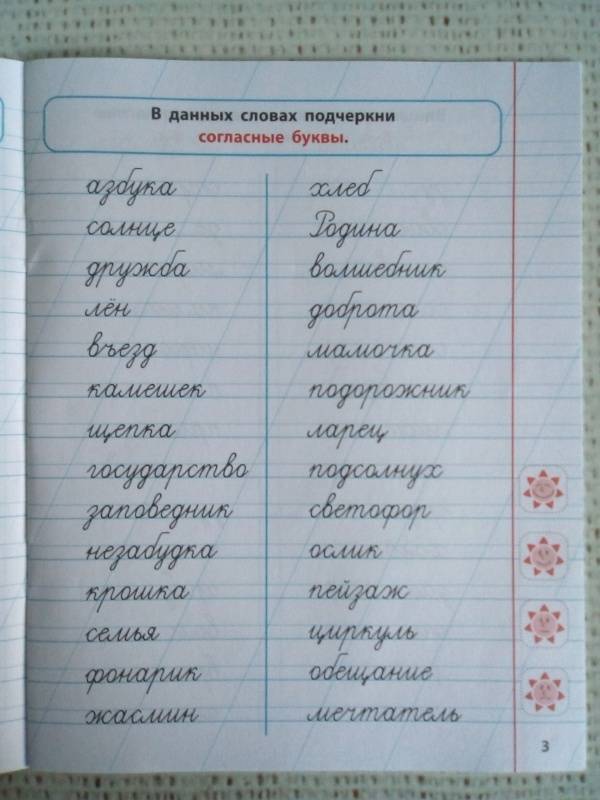 В данных словах подчеркни
согласные буквы.
азбука
солнце
дружба
лён
въезд
камешек
щепка
государство
заповедник
незабудка
крошка
семья
фонарик
жасмин
хлеб
Родина
волшебник
доброта
мамочка
подорожник
ларец
подсолнух
светофор
ослик
пейзаж
циркуль
обещание
мечтатель
3